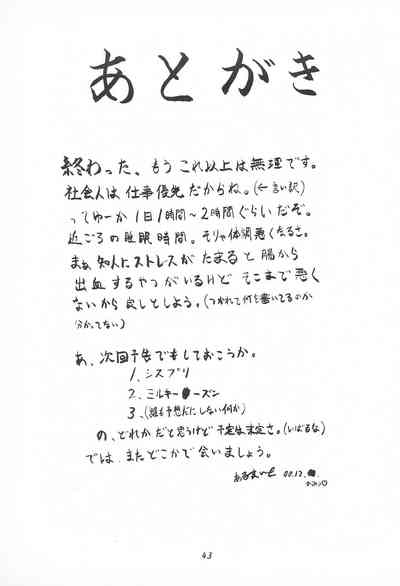 あとがき
終わった、もうこれ以上は無理です。
社会人は仕事優先だからね。(←言い訳)
ってゆーか1日1時間〜2時間ぐらいだぞ。
近ごろの睡眠時間。そりゃ体調悪くなるさ。
まぁ知人にストレスがたまると腸から
出血するやつがいるけど そこまで悪く
ないから良しとしよう。(つかれて何を書いてるのか
分かってない)
あ、次回予告でもしておこうか。
1、シスプリ
2、ミルキーシーズン
3、(誰も予想だにしない何か)
の、どれかだと思うけど 予定は未定さ。(いばるな)
では、またどこかで会いましょう。
00.12.
43